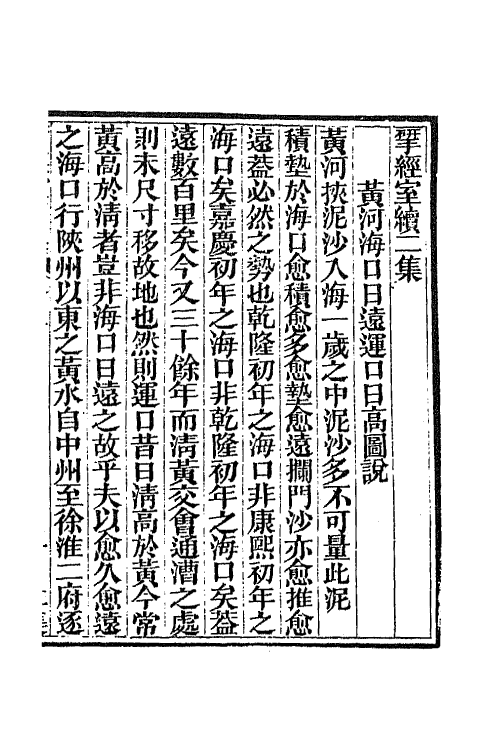 揅經室續二集
黃河海口日遠運口日高圖說
黃河挾泥沙入海一歲之中泥沙多不可量此泥
積墊於海口愈積愈多愈墊愈遠攔門沙亦愈推愈
遠葢必然之勢也乾隆初年之海口非康熙初年之
海口矣嘉慶初年之海口非乾隆初年之海口矣葢
遠數百里矣今又三十餘年而淸黃交會通漕之處
則未尺寸移故地也然則運口昔日淸高於黃今常
黃高於淸者豈非海口日遠之故乎夫以愈久愈遠
之海口行陝州以東之黃水自中州至徐淮二府逐